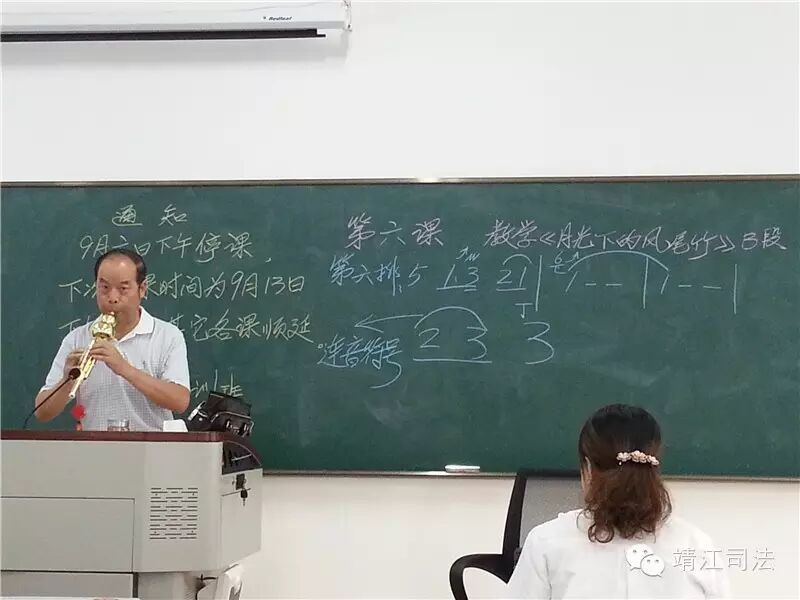 Redleaf
通知
9月六日下午停课,
下 时间为9月13日
下 其它各课顺延
训班
第六课 教学《月光下的凤尾竹》B段
第六排: 5 1 3 2 1 | 1 - - | 1 - - |
连音符号 2 3 3
靖江司法